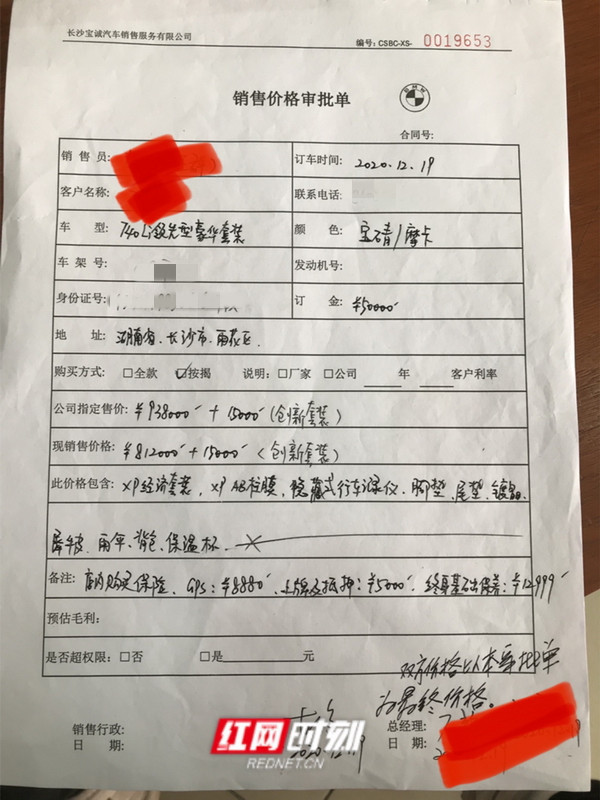 长沙宝诚汽车销售服务有限公司
编号: CSBC-XS- 0019653
销售价格审批单
合同号:
销 售 员: 订车时间: 2020.12.19
客户名称: 联系电话:
车 型: 740Li领先型豪华套装 颜 色: 宝石青/摩卡
车 架 号: 发动机号:
身份证号: 订 金: ¥50000
地 址: 湖南省、长沙市、雨花区.
购买方式: □全款 ☑按揭 说明: □厂家 □公司 年 客户利率
公司指定售价: ¥938000 + 15000 (创新套装)
现销售价格: ¥812000 + 15000 (创新套装)
此价格包含: XP经济套装, XP AB柱膜, 隐藏式行车记录仪、脚垫、尾垫、镀晶、
犀牛皮、雨伞、背包、保温杯、
备注: 店内购买保险、GPS: ¥8880 、上牌及抵押: ¥5000 、终身基础保养: ¥12999
预估毛利:
是否超权限: □否 □是 元
双方价格以本审批单
为最终价格。
销售行政: 总经理:
日 期: 2020.12.19 日 期:
红网时刻
REDNET.CN